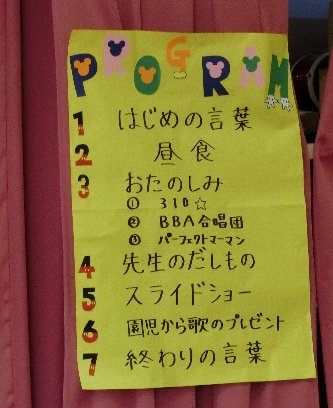 PROGRAM
1 はじめの言葉
2 昼食
3 おたのしみ
① 310☆
② BBA合唱団
③ パーフェクトマーマン
4 先生のだしもの
5 スライドショー
6 園児から歌のプレゼント
7 終わりの言葉